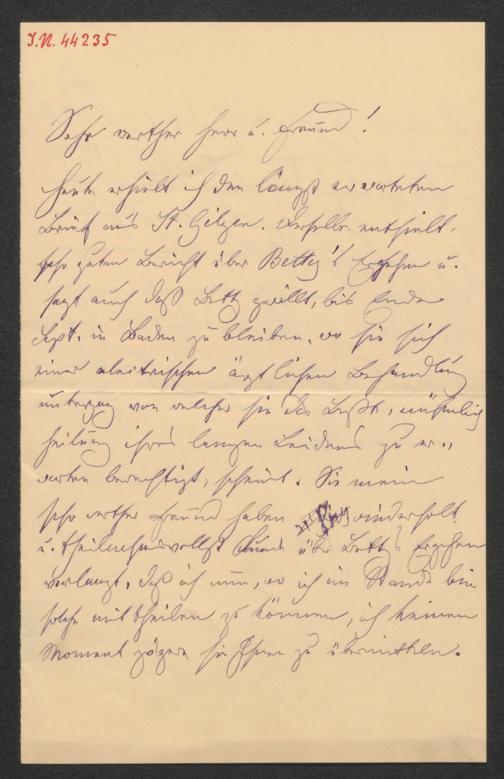 J.N. 44235
Sehr werther Herr u. Freund!
Heute erhielt ich den längst erwarteten
Brief aus St. Gilgen. Derselbe enthielt
sehr guten Bericht über Betty's Ergehen u.
sagt auch daß Betty gewillt, bis Ende
Sept. in Baden zu bleiben, wo sie sich
einer elektrischen ärztlichen Behandlung
unterzog von welcher sie das Beste, nämlich
Heilung ihres langen Leidens zu er-
warten berechtigt, scheint. Sie mein
sehr werther Freund haben wiederholt
u. theilnahmsvollst Kunde über Betty's Ergehen
verlangt, daß ich nun, wo ich im Stande bin
solche mittheilen zu können, ich keinen
Moment zögere sie Ihnen zu übermitteln.